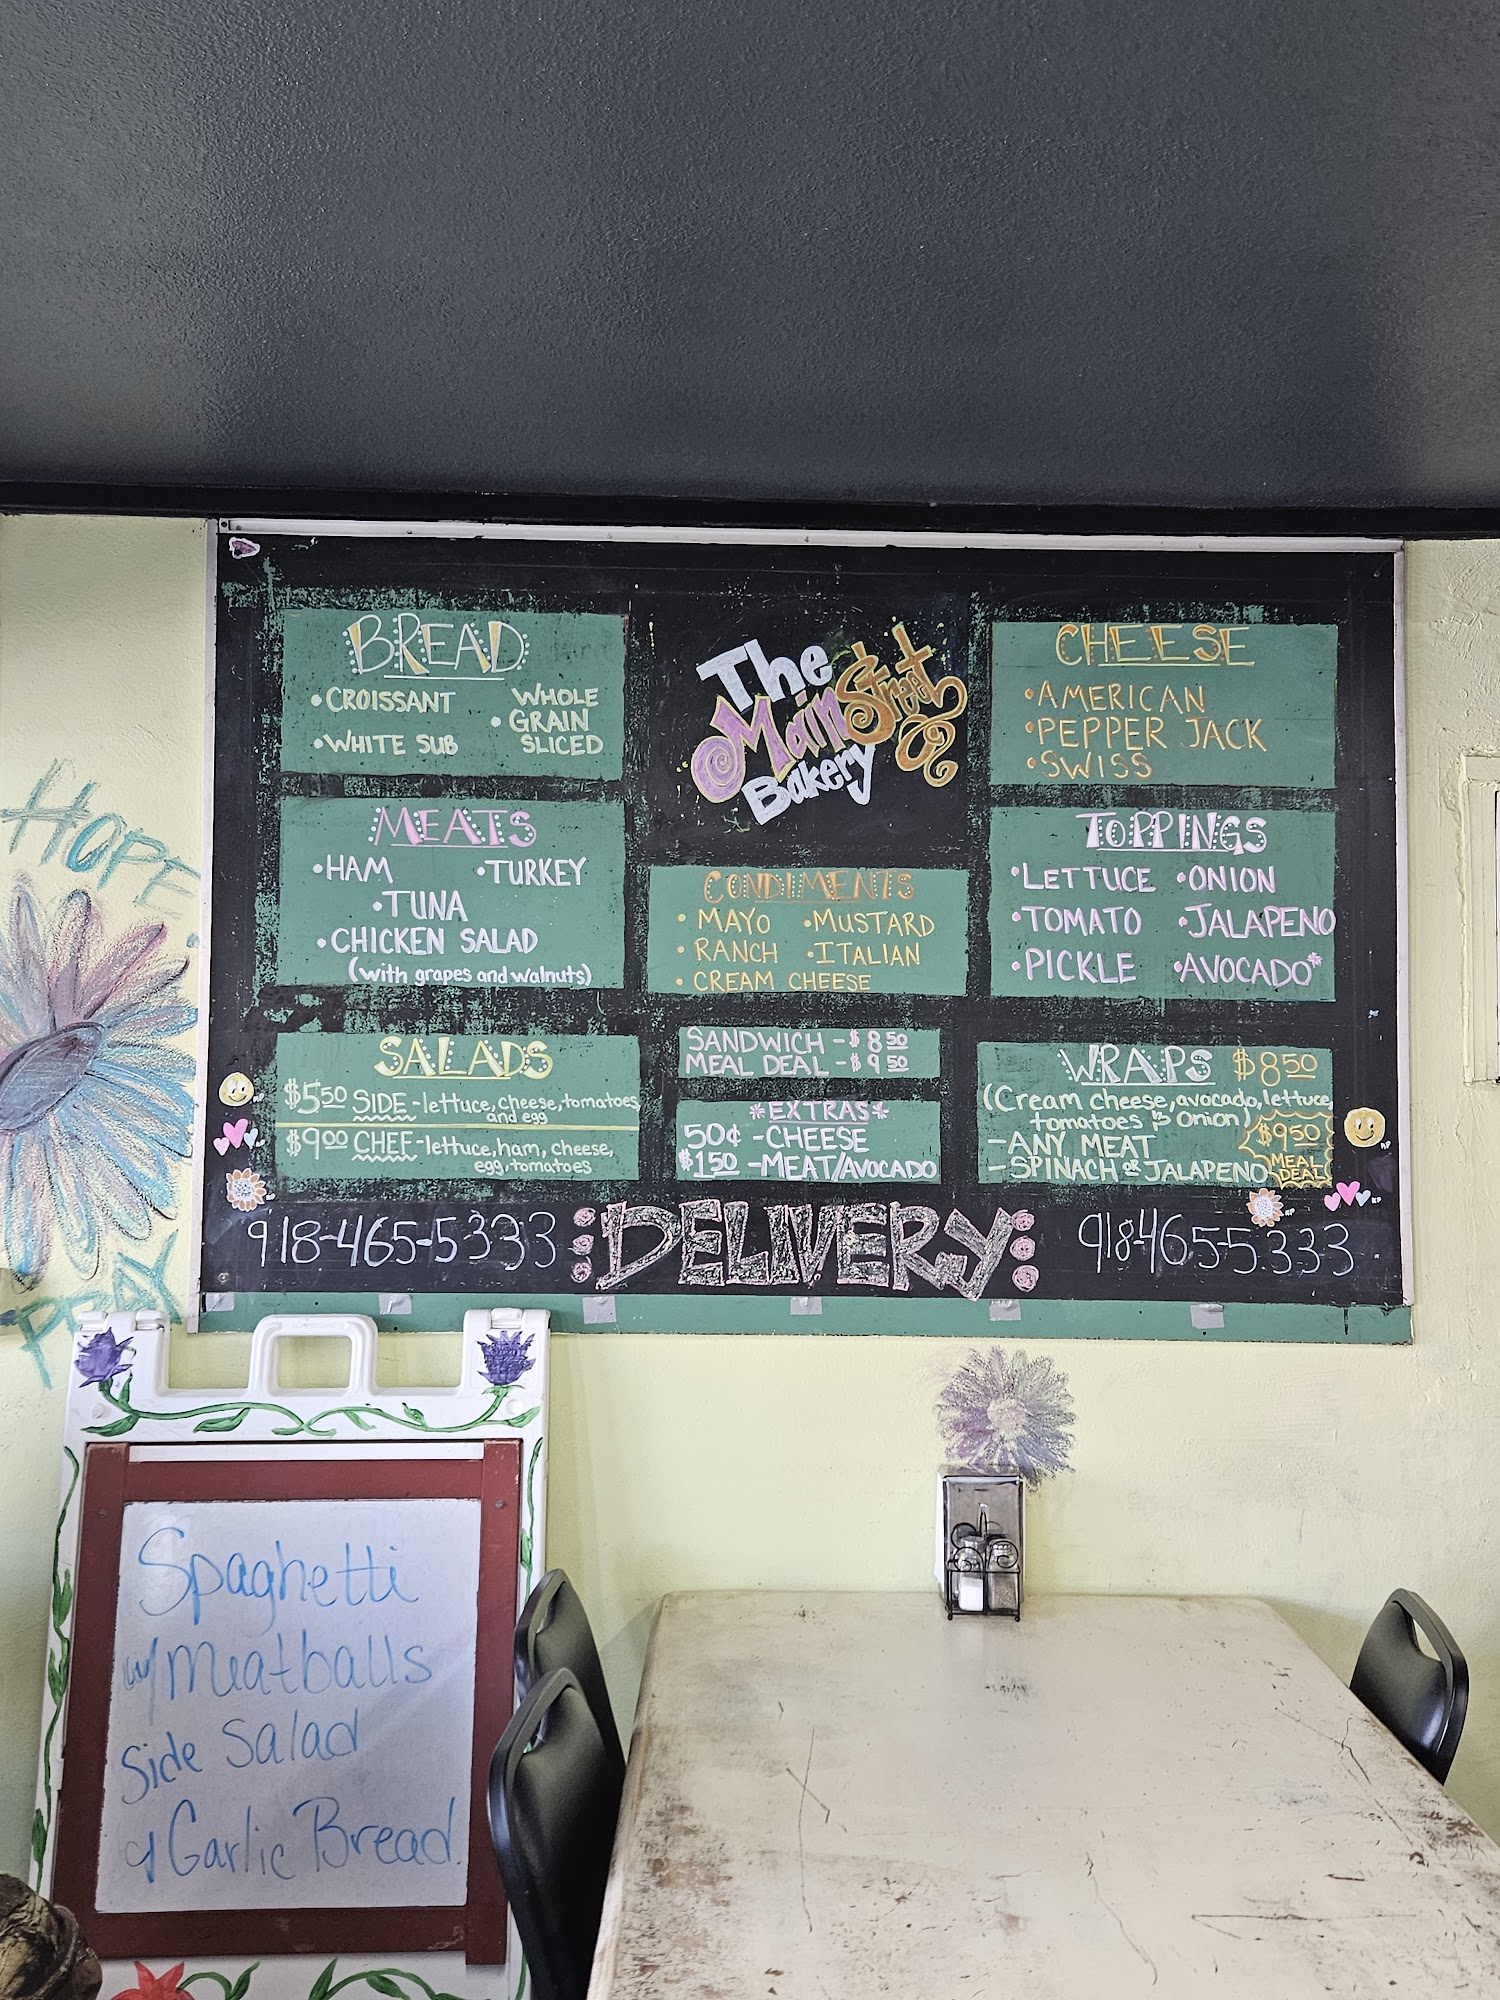 BREAD
•CROISSANT
•WHITE SUB
WHOLE
•GRAIN
SLICED
The
Main Street
Bakery
CHEESE
•AMERICAN
•PEPPER JACK
•SWISS
MEATS
•HAM •TURKEY
•TUNA
•CHICKEN SALAD
(with grapes and walnuts)
CONDIMENTS
•MAYO •MUSTARD
•RANCH •ITALIAN
•CREAM CHEESE
TOPPINGS
•LETTUCE •ONION
•TOMATO •JALAPENO
•PICKLE •AVOCADO*
SALADS
$5.50 SIDE-lettuce, cheese, tomatoes,
and egg
$9.00 CHEF-lettuce, ham, cheese,
egg, tomatoes
SANDWICH - $8.50
MEAL DEAL - $9.50
*EXTRAS*
50¢ -CHEESE
$1.50 -MEAT/AVOCADO
WRAPS $8.50
(Cream cheese, avocado, lettuce
tomatoes & onion)
-ANY MEAT
-SPINACH or JALAPENO
$9.50
MEAL
DEAL
918-465-5333 DELIVERY 918465-5333
HOPE
PRAY
Spaghetti
w/ Meatballs
Side Salad
& Garlic Bread.